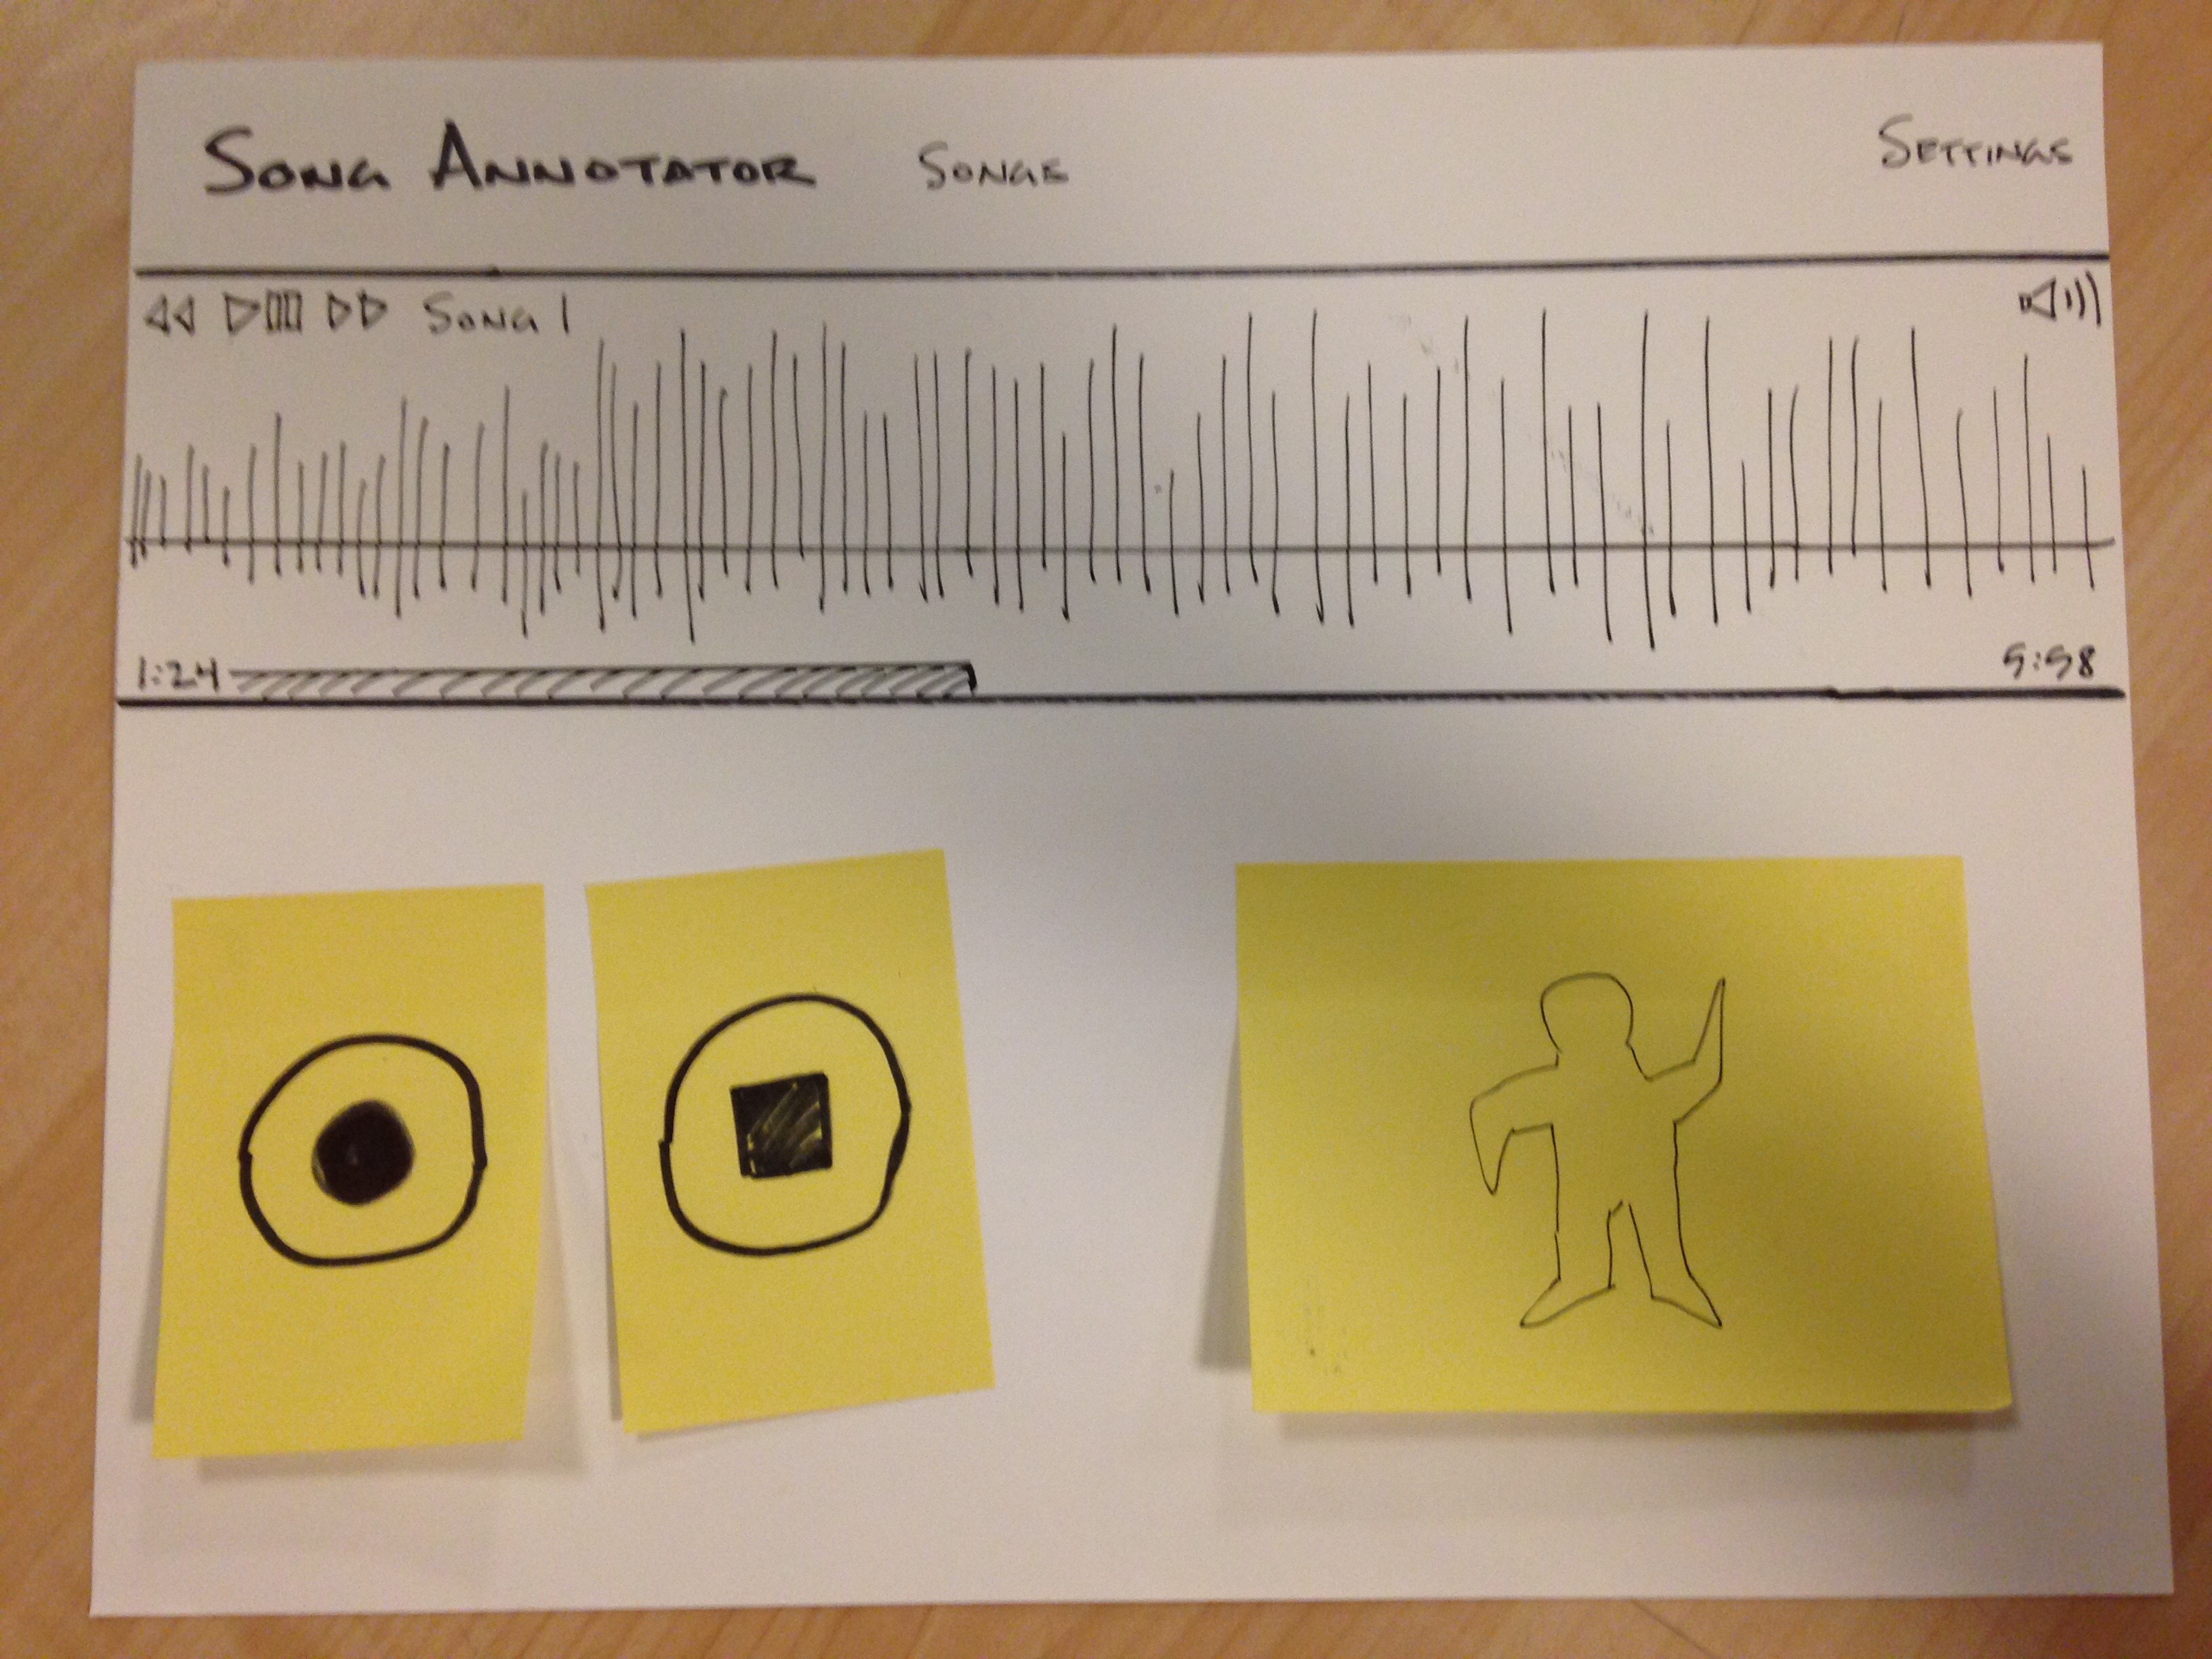 SONG ANNOTATOR SONGS SETTINGS
SONG 1
1:24 5:58